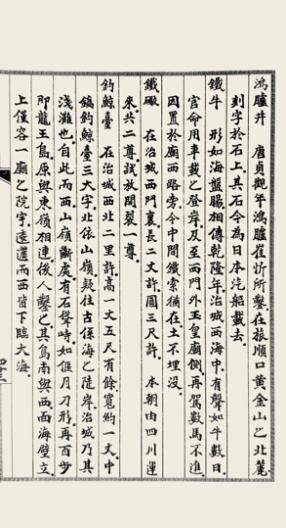 鴻臚井　唐貞觀年鴻臚崔忻所鑿在旅順口黃金山之北麓
刻字於石上其石今為日本汽船載去
鐵牛　形如海盤腸相傳乾隆年治城西海中有聲如牛數日
官命用車載之登岸及至西門外玉皇廟側再駕數馬不進
因置於廟西路旁今中間鐵索猶在土不埋沒
鐵礮　在治城西門裏長二丈許圓三尺許　本朝由四川運
來共二尊試放開裂一尊
釣鯨臺　在治城西北二里許高一丈五尺有餘寬約一丈中
鐫釣鯨臺三大字北依山嶺疑往古係海之陡岸治城乃其
淺灘也自此而西山嶺斷處有石聲時如偃月刀形再百步
即龍王島原與東嶺相連後人鑿之其島南與西面海壁立
上僅容一廟之院宇遠邇而西皆下臨大海